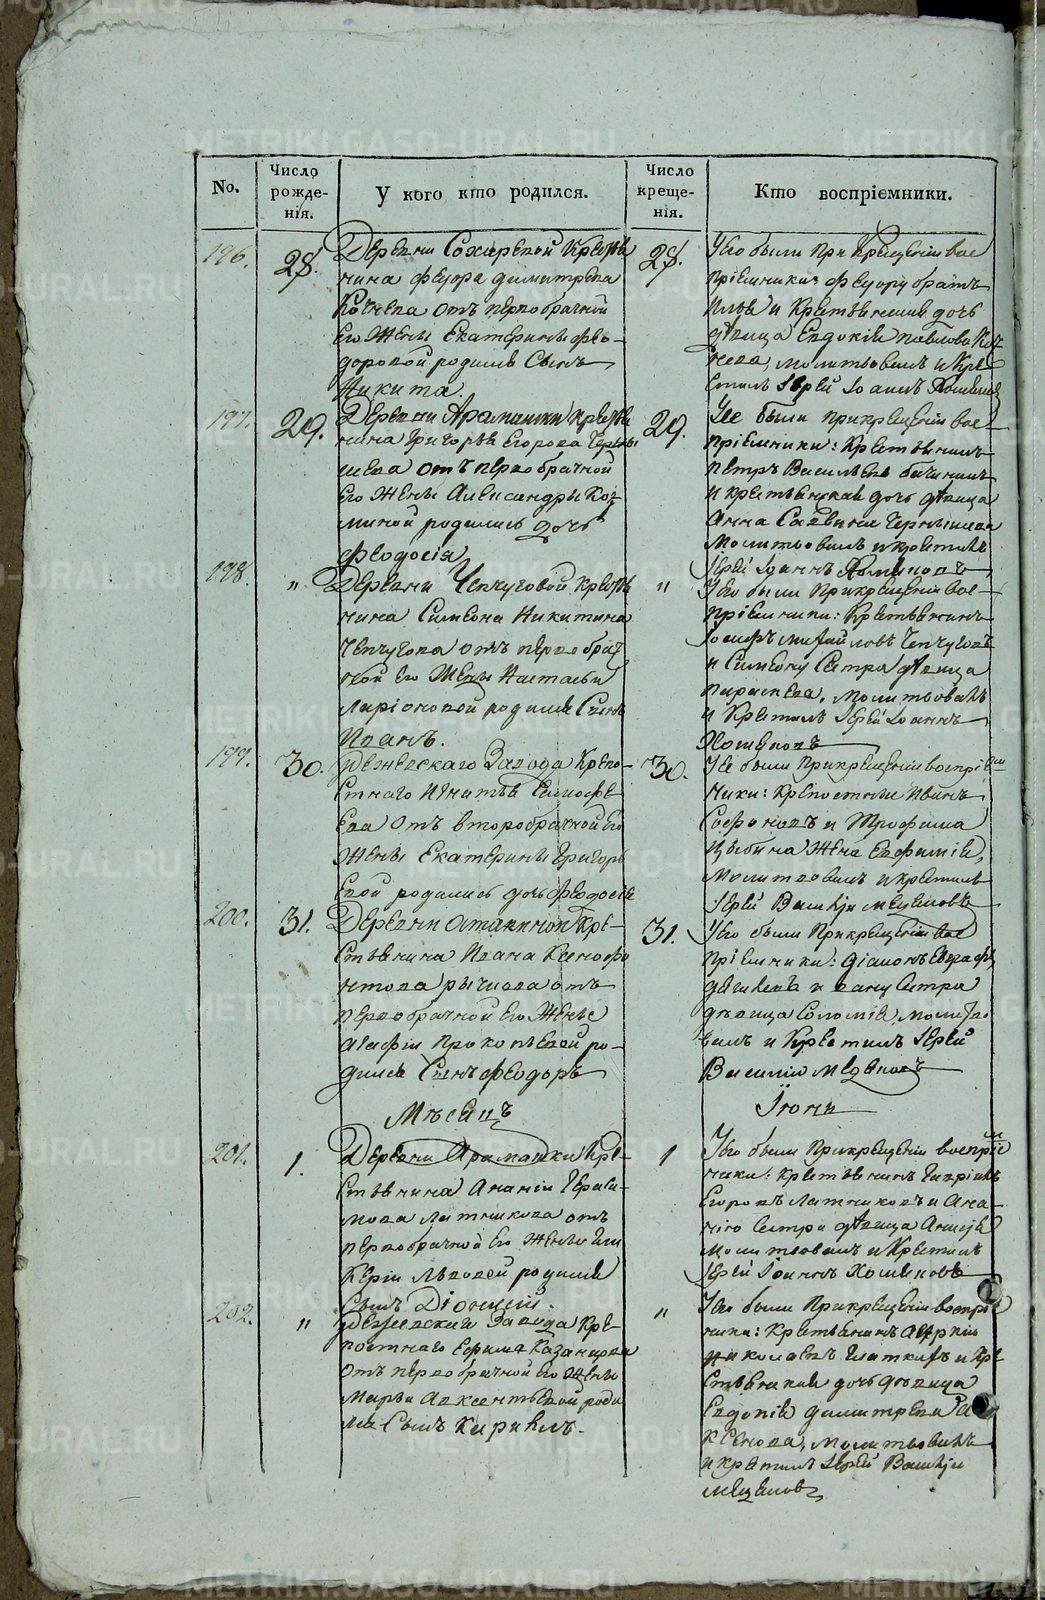 No.
Число рожде-нія.
У кого кто родился.
Число креще-нія.
Кто воспріемники.
196.
28.
Деревни Сохаревой Крестья
нина Феѻдора Димитріева
Кочнева отъ первобрачной
его Жены Екатерины Фео-
доровой родился Сынъ
Никита.
28.
У него были при Крещеніи вос
пріемники: Феодору братъ
Илья и Крестьянская дочь
дѣвица Евдокія Павлова Коч
нева, молитвовалъ и Кре
стилъ Іерей Іоаннъ
197.
29.
Деревни Арамашки Крестья
нина Григорья Егорова Черны
шева отъ первобрачной
его Жены Александры Коз
миной родилась дочь
Феодосія
29.
У нее были при крещеніи вос
пріемники: Крестьянинъ
Петръ Васильевъ
и крестьянская дочь дѣвица
Анна Саввина Чернышева
молитвовалъ и крестилъ
Іерей Іоаннъ
198.
"
Деревни Чепчуговой Крестья
нина Симеона Никитина
Чепчугова отъ первобрач
ной его Жены Настасьи
Ларіоновой родился Сынъ
Иванъ.
"
У него были при крещеніи вос-
пріемники: Крестьянинъ
Іосифъ Михайловъ Чепчуговъ
и Симеону Сестра дѣвица
Параскева, молитвовалъ
и Крестилъ Іерей Іоаннъ
199.
30.
Режевскаго Завода Крепо-
стнаго Игнатья Тимофе
ева отъ второбрачной его
Жены Екатерины Григорь
евой родилась дочь Феодосія
30.
У нее были при крещеніи воспріем
ники: Крепостные Иванъ
и Трофима
Жена Евфимія,
молитвовалъ и крестилъ
Іерей Василій
200.
31.
Деревни Останиной Кре-
стьянина Ивана Ксенофо
нтова Рычкова отъ
первобрачной его Жены
Агафіи Прокопьевой ро-
дился Сынъ Феодоръ
31.
У него были при крещеніи вос
пріемники: Діаконъ Евграфъ
и Ивану Сестра
дѣвица Соломія, молитво
валъ и Крестилъ Іерей
Василій
Мѣсяцъ
Іюнь
201.
1.
Деревни Арамашки Кре-
стьянина Ананіи Гераси-
мова Латникова отъ
первобрачной его Жены Гли
керіи Львовой родился
Сынъ Діонисій.
1
У него были при крещеніи воспріем
ники: Крестьянинъ Гавріилъ
Егоровъ Латниковъ и Ана-
нію Сестра дѣвица
молитвовалъ и Крестилъ
Іерей Іоаннъ
202.
"
Режевскаго Завода Кре-
постнаго Ефима Казанцева
отъ первобрачной его Жены
Марьи Авксентьевой роди
лся Сынъ Кирилъ.
"
У него были при крещеніи воспріем
ники: Крестьянинъ
Николаевъ и Кре
стьянская дочь дѣвица
Евдокія Димитріева
молитвовалъ
и крестилъ Іерей Василій